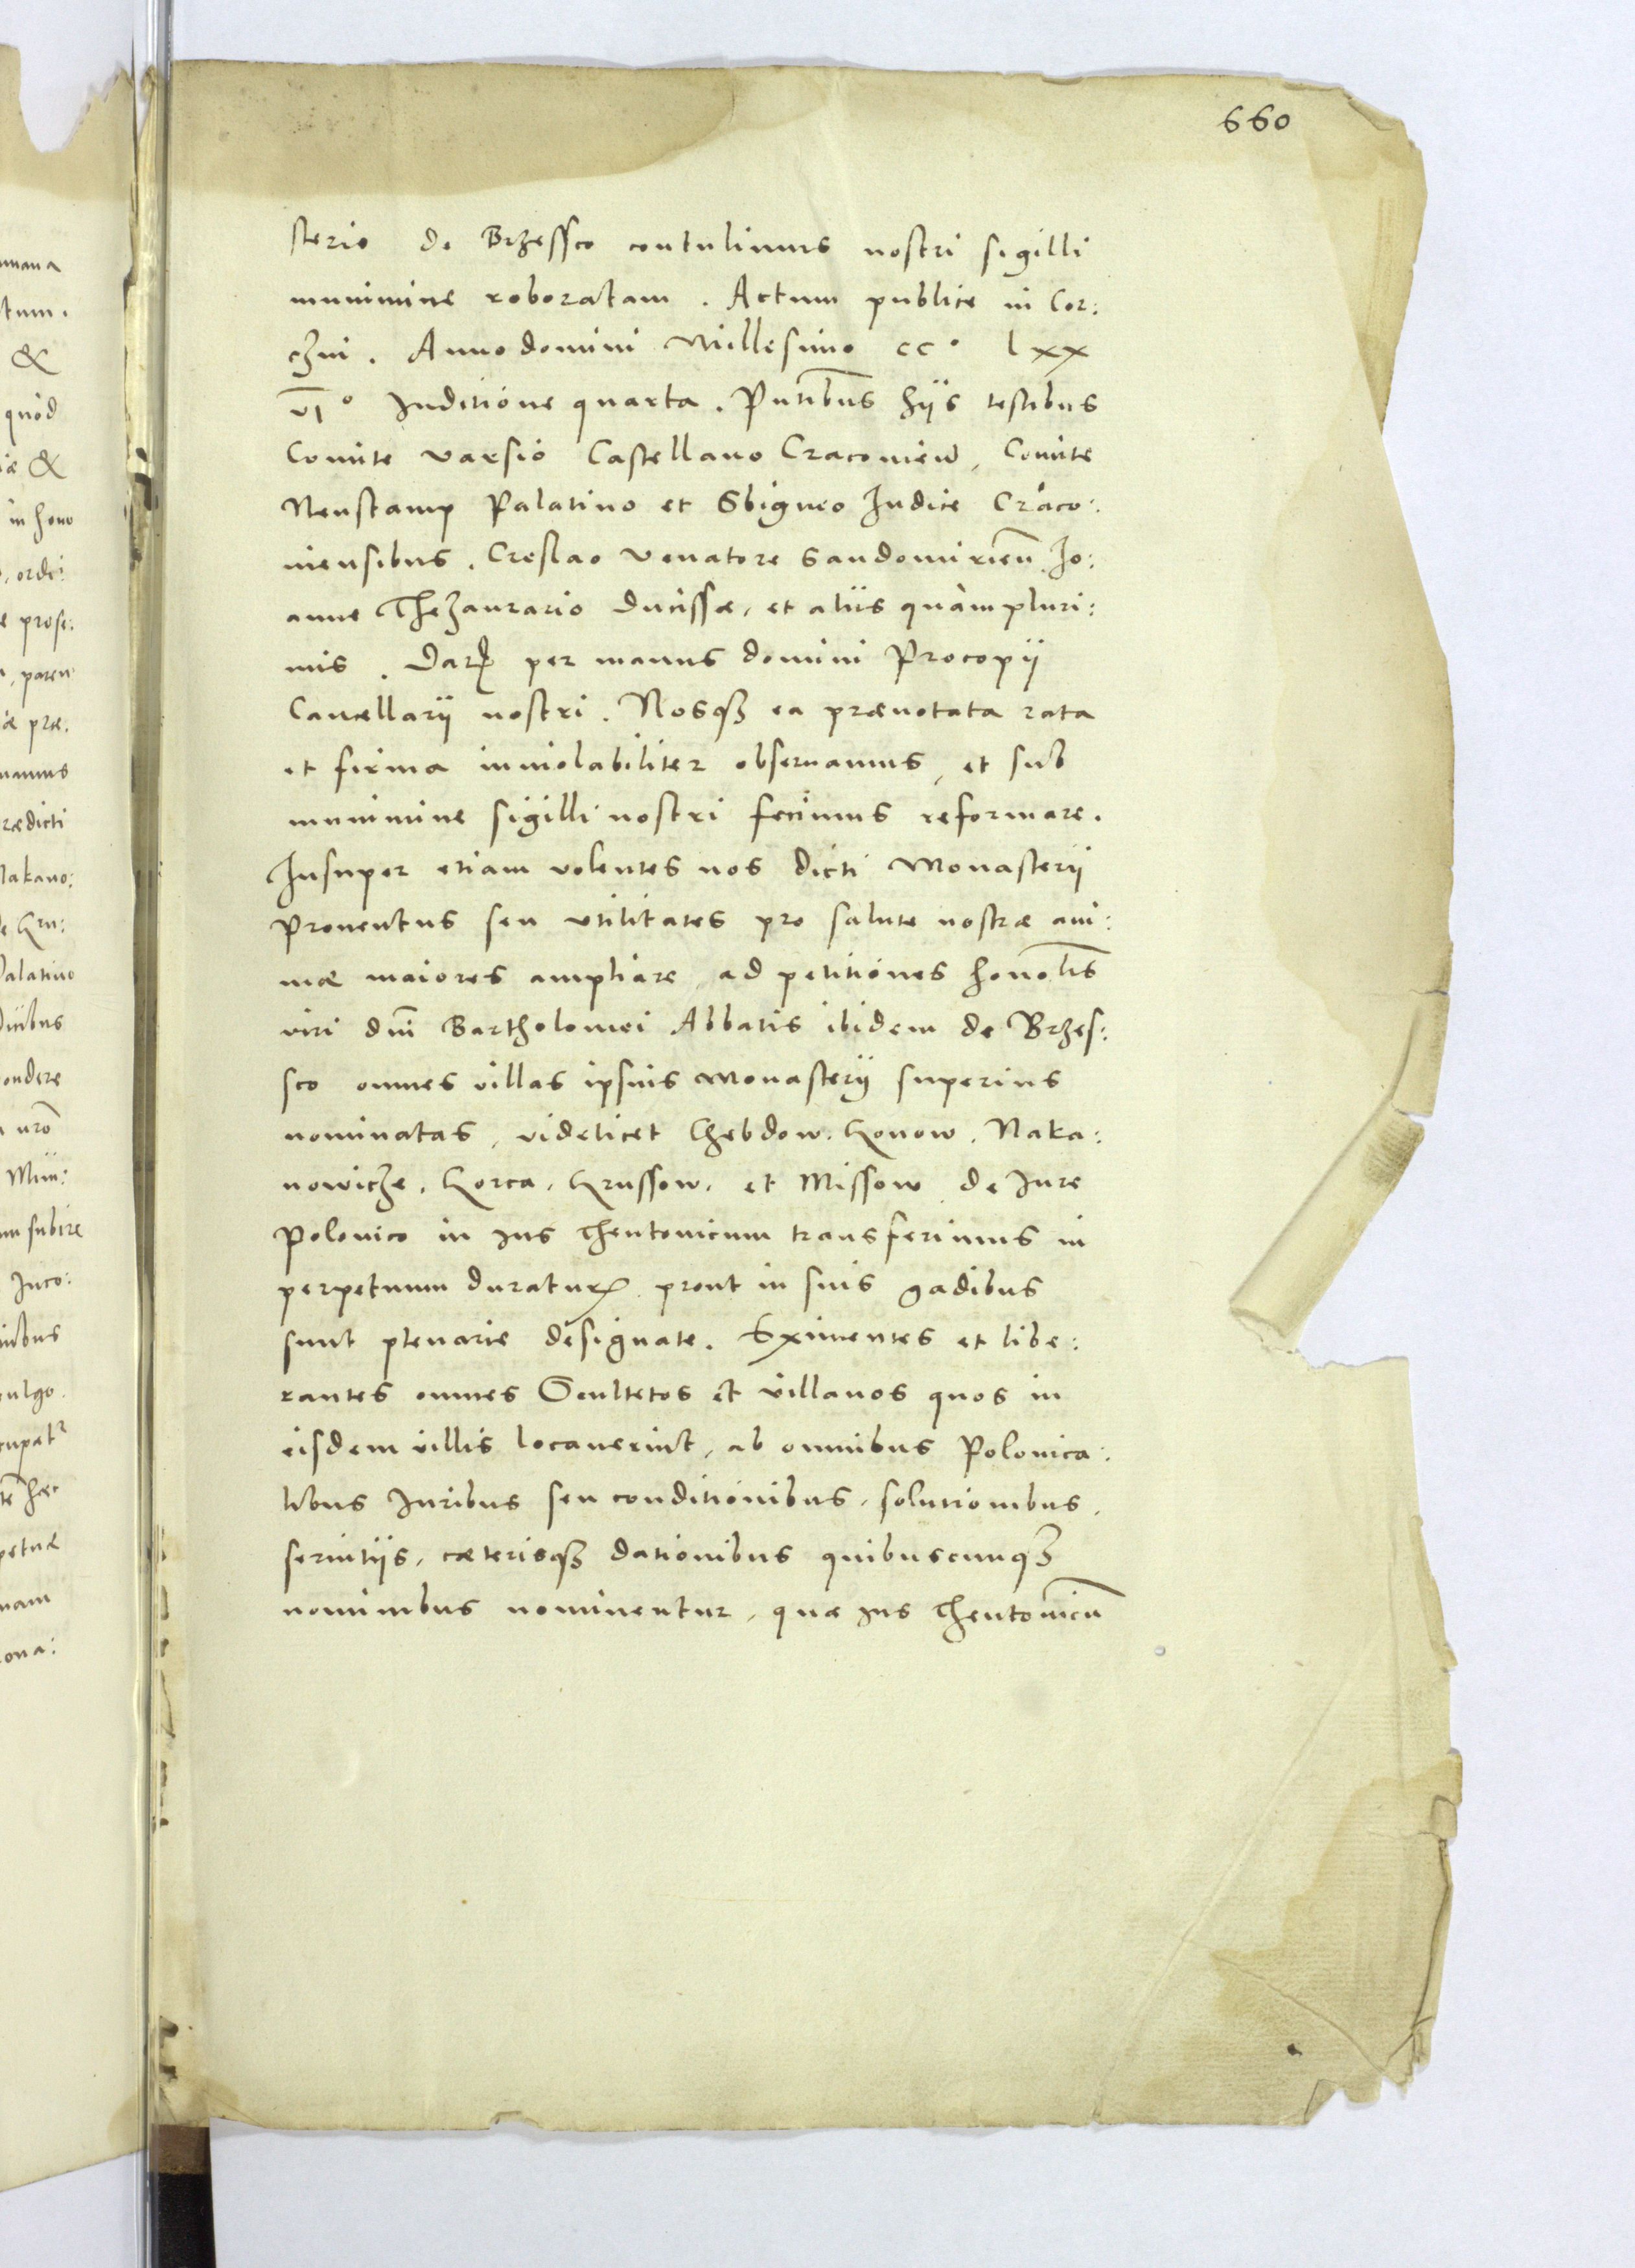 660
sterio de Brzessco contulimus nostri sigilli
munimine roboratam. Actum publice in Cor:
czin. Anno domini Millesimo cc° lxx
vi° Inditione quarta. Pntibus hijs testibus
Comite varsio Castellano Cracouien, Comite
Neustamp Palatino et Sbigneo Iudice Craco:
niensibus. Creslao Venatore Sandomirien Io:
anne Thezaurario Ducissæ, et aliis quàm pluri:
mis. Dat per manus domini Procopij
Cancellarij nostri. Nosq3 ea prænotata rata
et firma inuiolabiliter obseruamus, et sub
munimine sigilli nostri fecimus reformare.
Insuper etiam volentes nos dicti Monasterij
Prouentus seu vtilitates pro salute nostræ ani:
mæ maiores ampliare, ad petitiones honolis
viri dni Bartholomei Abbatis ibidem de Brzes:
sco omnes villas ipsius Monasterij superius
nominatas, videlicet Chebdow. Konow. Naka:
nowicze, Korca, Krussow, et Missow de Iure
Polonico in Ius Theutonicum transferimus in
perpetuum duratur prout in suis gadibus
sunt plenarie designate. Eximentes et libe:
rantes omnes Scultetos et villanos quos in
eisdem villis locauerint, ab omnibus Polonica:
libus Iuribus seu conditionibus, solutionibus,
seruitijs, cæterisq3 dationibus quibuscunq3
nominibus nominentur, quæ Ius Theutonicu
muana
tum.
&
quòd
iæ &
in hono
, ordi:
e profe:
, paren
iæ præ.
manus
rædicti
Nakano:
e Kru:
Palatino
Ducibus
ondere
nro
Mun:
um subire
Inco:
nibus
vulgo.
cupatr
te hæc
petuæ
nam
ona: